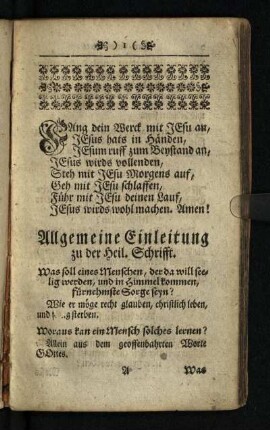 ) 1 (
FAng dein Werck mit JEsu an,
JEsus hats in Händen,
JEsum ruff zum Beystand an,
JEsus wirds vollenden,
Steh mit JEsu Morgens auf,
Geh mit JEsu schlaffen,
Führ mit JEsu deinen Lauf,
JEsus wirds wohl machen. Amen!
Allgemeine Einleitung
zu der Heil. Schrifft.
Was soll eines Menschen, der da will see-
lig werden, und in Himmel kommen,
fürnehmste Sorge seyn?
Wie er möge recht glauben, christlich leben,
und sterben.
Woraus kan ein Mensch solches lernen?
Allein aus dem geoffenbahrten Worte
GOttes.
A Was